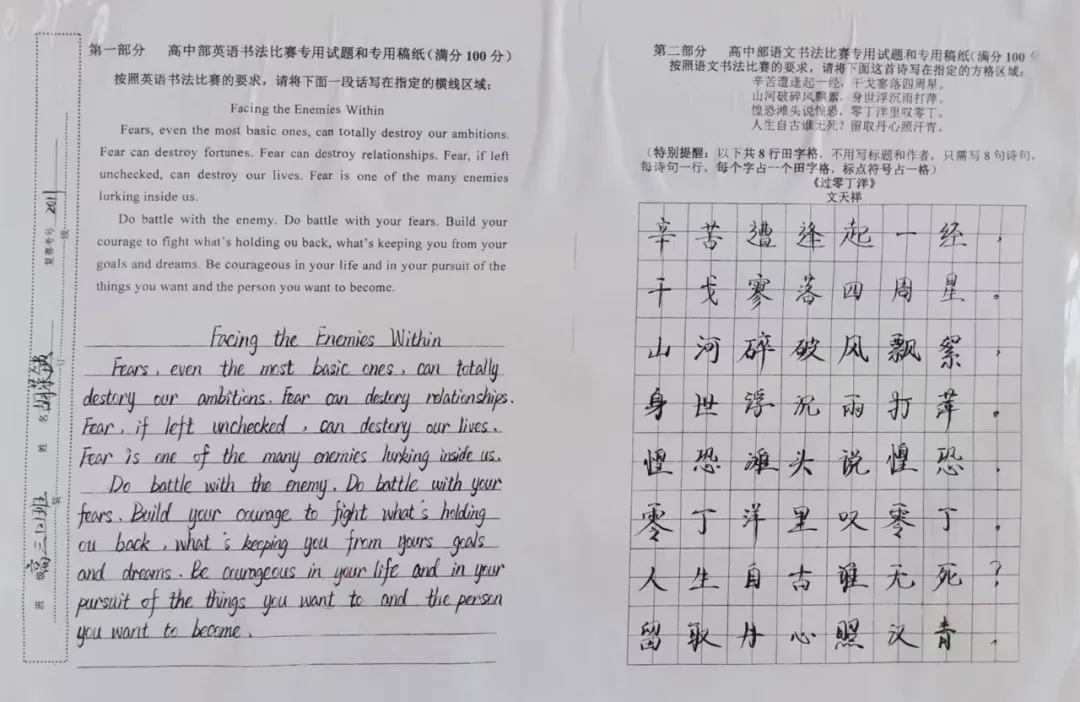 第一部分 高中部英语书法比赛专用试题和专用稿纸(满分100分)
按照英语书法比赛的要求，请将下面一段话写在指定的横线区域：
Facing the Enemies Within
Fears, even the most basic ones, can totally destroy our ambitions.
Fear can destroy fortunes. Fear can destroy relationships. Fear, if left
unchecked, can destroy our lives. Fear is one of the many enemies
lurking inside us.
Do battle with the enemy. Do battle with your fears. Build your
courage to fight what's holding ou back, what's keeping you from your
goals and dreams. Be courageous in your life and in your pursuit of the
things you want and the person you want to become.
Facing the Enemies Within
Fears, even the most basic ones, can totally
destory our ambitions. Fear can destory relationships.
Fear, if left unchecked, can destory our lives.
Fear is one of the many enemies lurking inside us.
Do battle with the enemy. Do battle with your
fears. Build your courage to fight what's holding
ou back, what's keeping you from yours goals
and dreams. Be courageous in your life and in your
pursuit of the things you want to and the person
you want to become.
复赛考号 2011
姓名
班 高三12班
线
订
装
第二部分 高中部语文书法比赛专用试题和专用稿纸(满分100分
按照语文书法比赛的要求，请将下面这首诗写在指定的方格区域：
辛苦遭逢起一经，干戈寥落四周星。
山河破碎风飘絮，身世浮沉雨打萍。
惶恐滩头说惶恐，零丁洋里叹零丁。
人生自古谁无死？留取丹心照汗青。
(特别提醒：以下共8行田字格，不用写标题和作者，只需写8句诗句，
每诗句一行，每个字占一个田字格，标点符号占一格)
《过零丁洋》
文天祥
辛苦遭逢起一经，
干戈寥落四周星。
山河碎破风飘絮，
身世浮沉雨打萍。
惶恐滩头说惶恐，
零丁洋里叹零丁。
人生自古谁无死？
留取丹心照汉青。